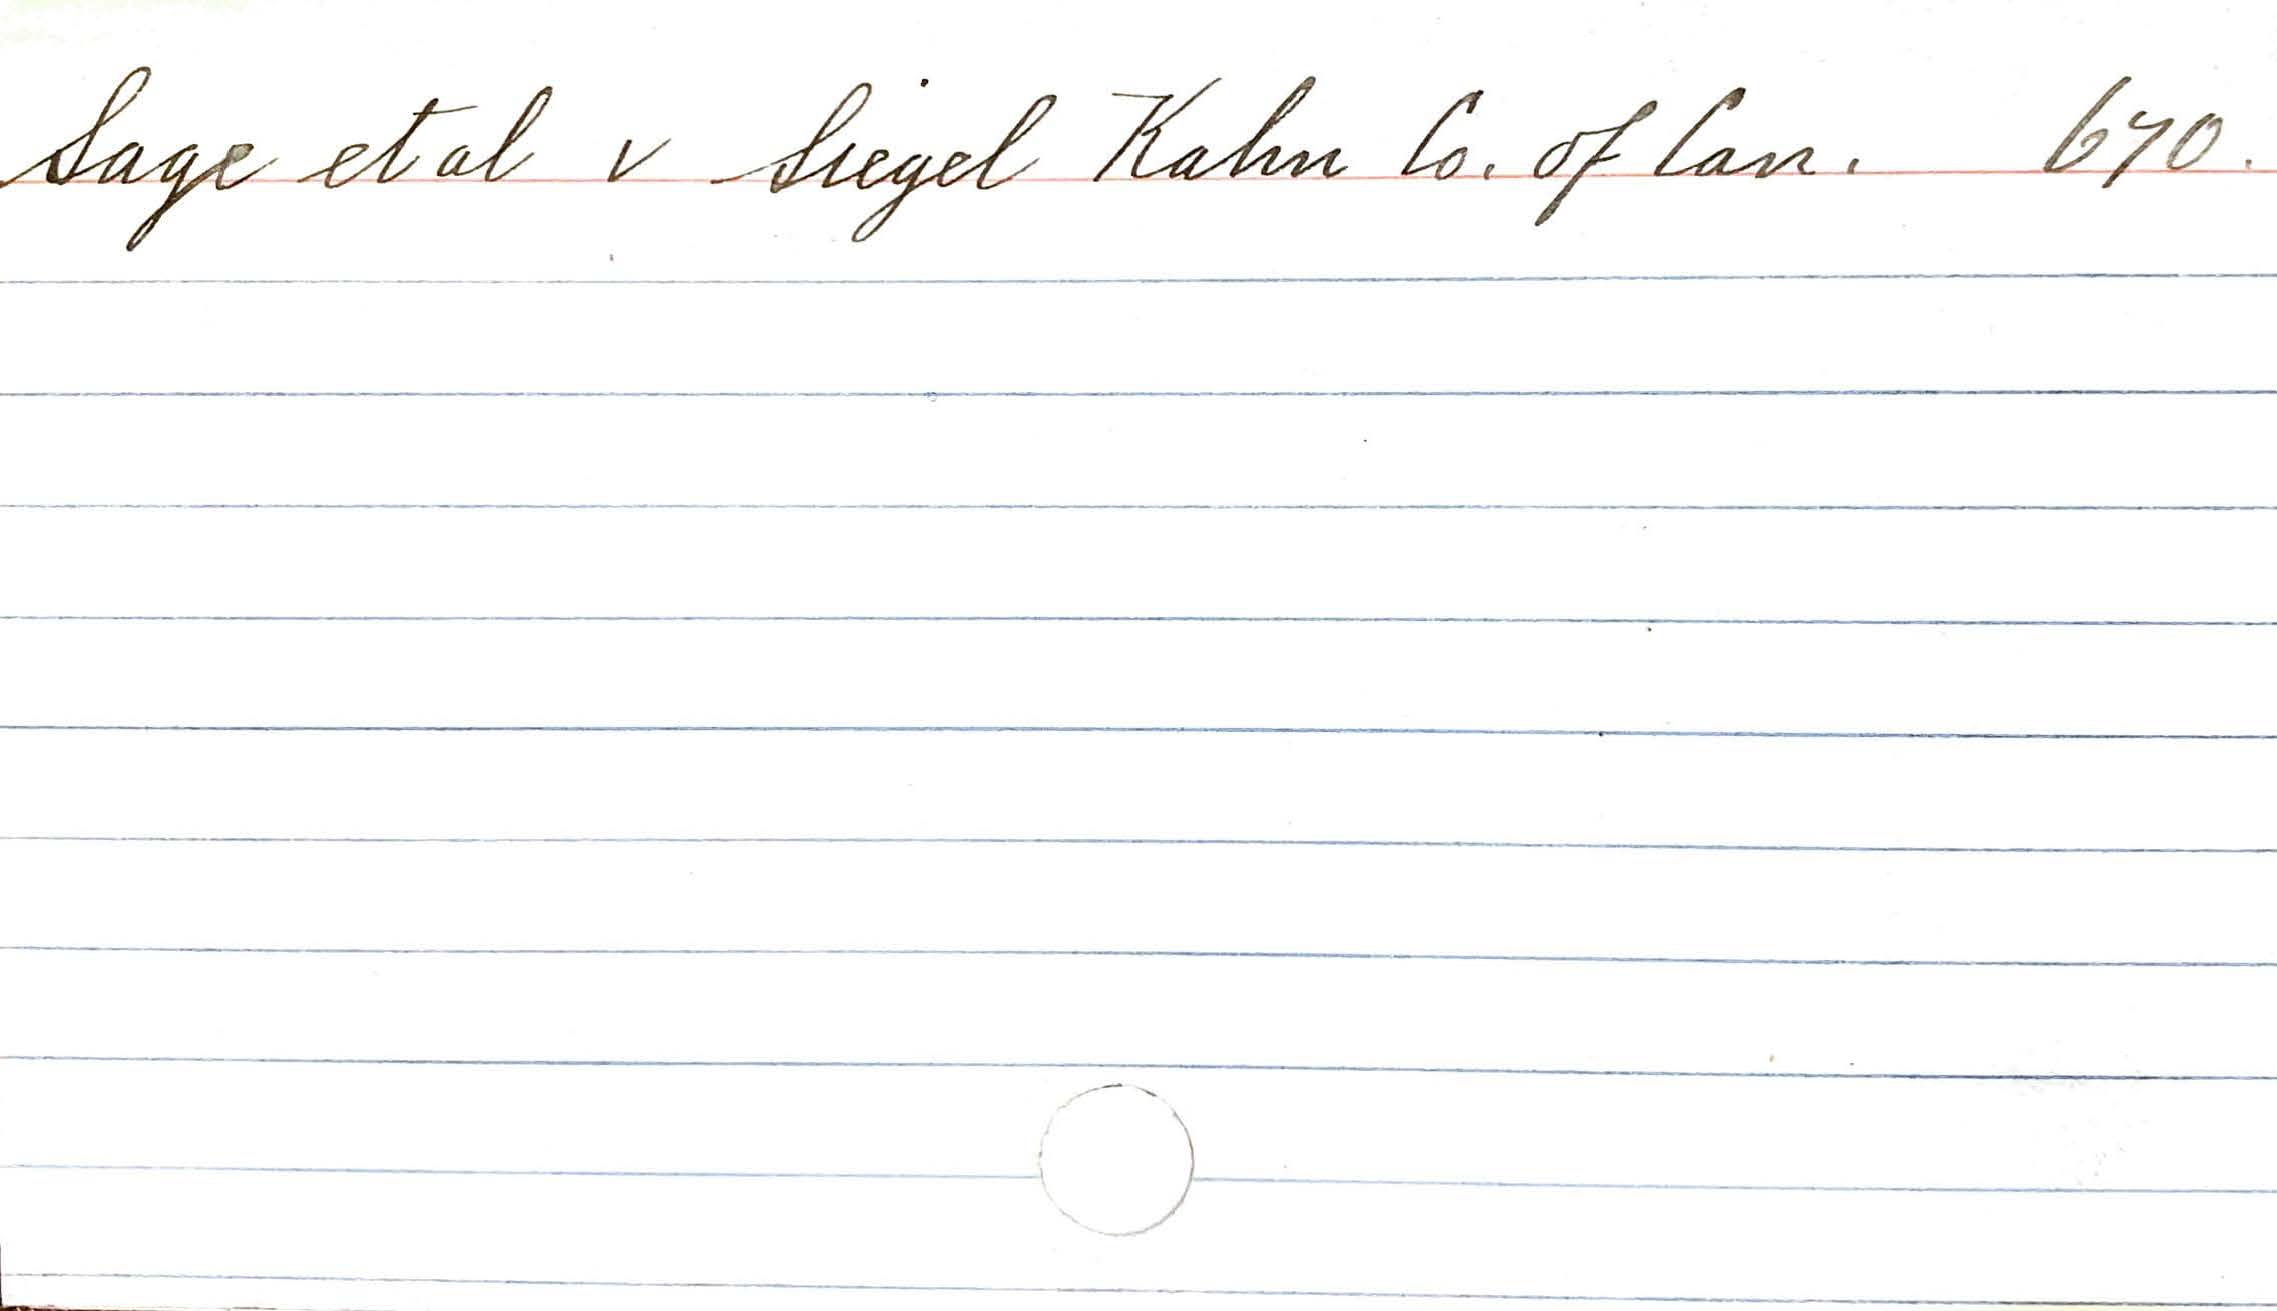 Sage et al v Siegel Kahn Co. of Can. 670.